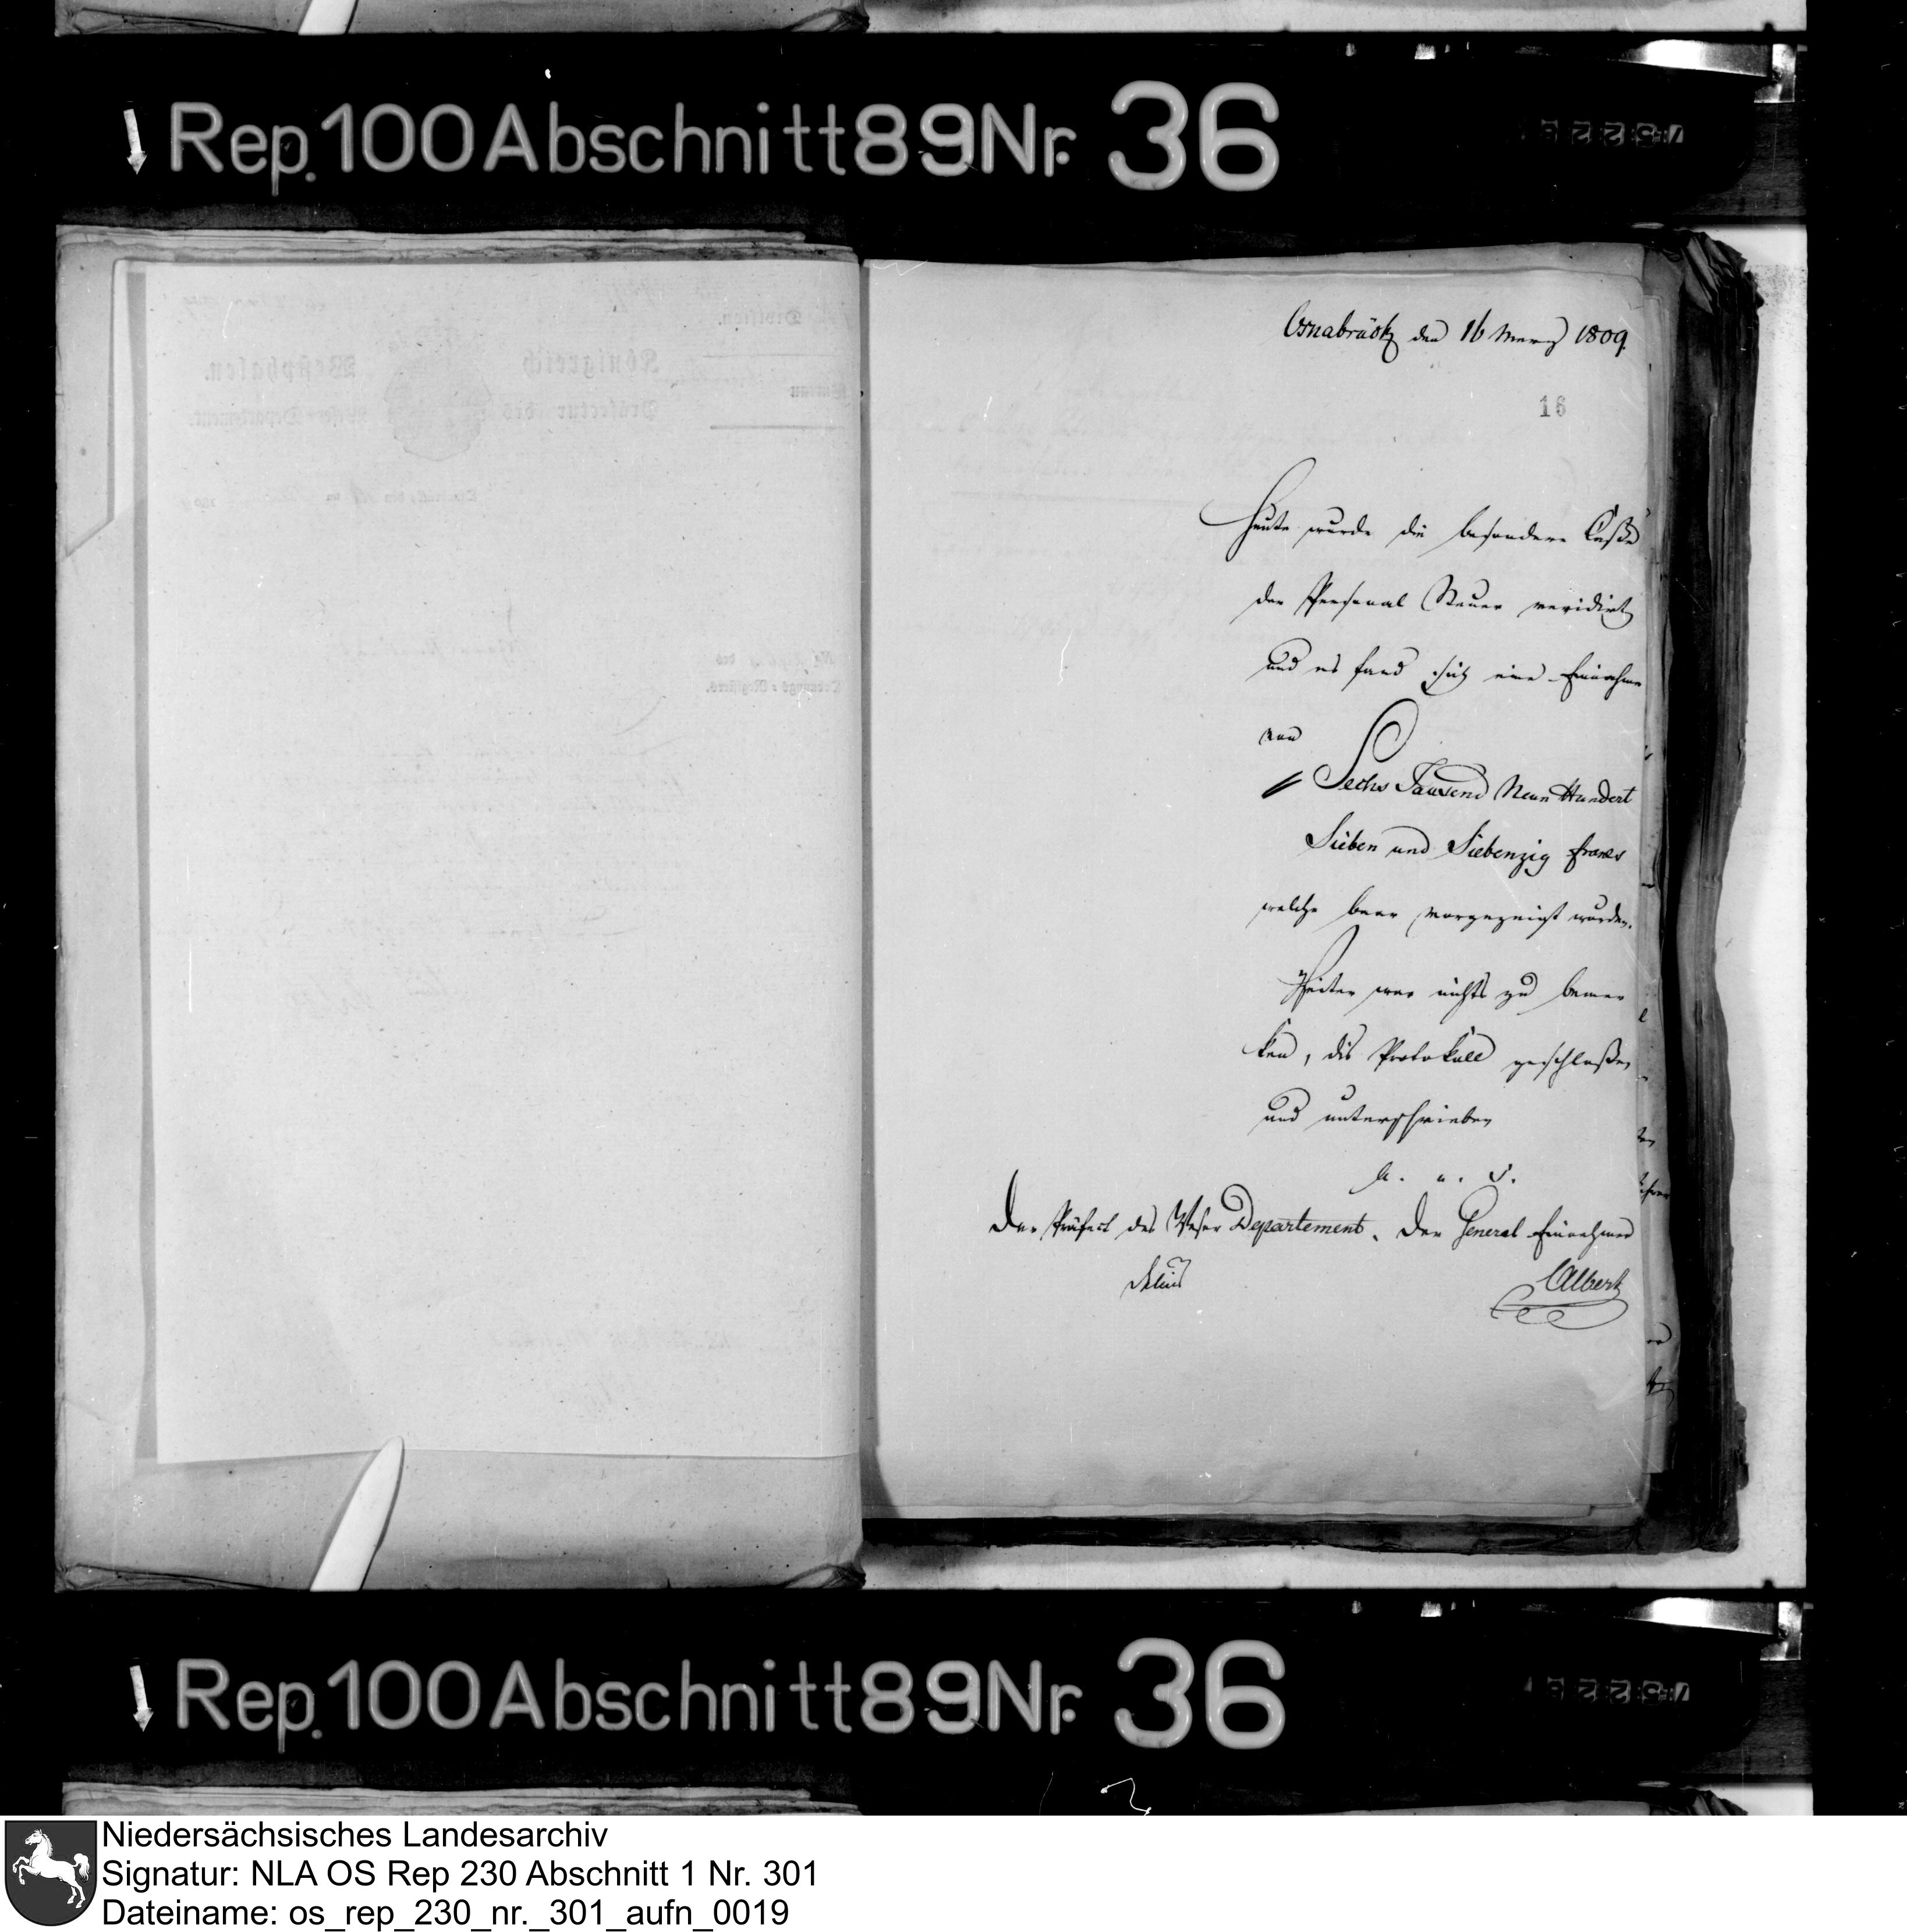 Rep. 100 Abschnitt 89 Nr. 36
Osnabrück den 16 Merz 1809.
16
Heute wurde die besondere Caße
der Personal Steuer revidirt
und es fand sich eine Einnahme
von
Sechs Tausend Neun Hundert
Sieben und Siebenzig Francs
welche baar vorgezeigt wurden.
Weiter war nichts zu bemer
ken, dis Protokoll geschloßen
und unterschrieben
A. u. S.
Der Präfect des Weser Departement. Der General Einnehmer
Delius
Albert
Rep. 100 Abschnitt 89 Nr. 36
Niedersächsisches Landesarchiv
Signatur: NLA OS Rep 230 Abschnitt 1 Nr. 301
Dateiname: os_rep_230_nr._301_aufn_0019